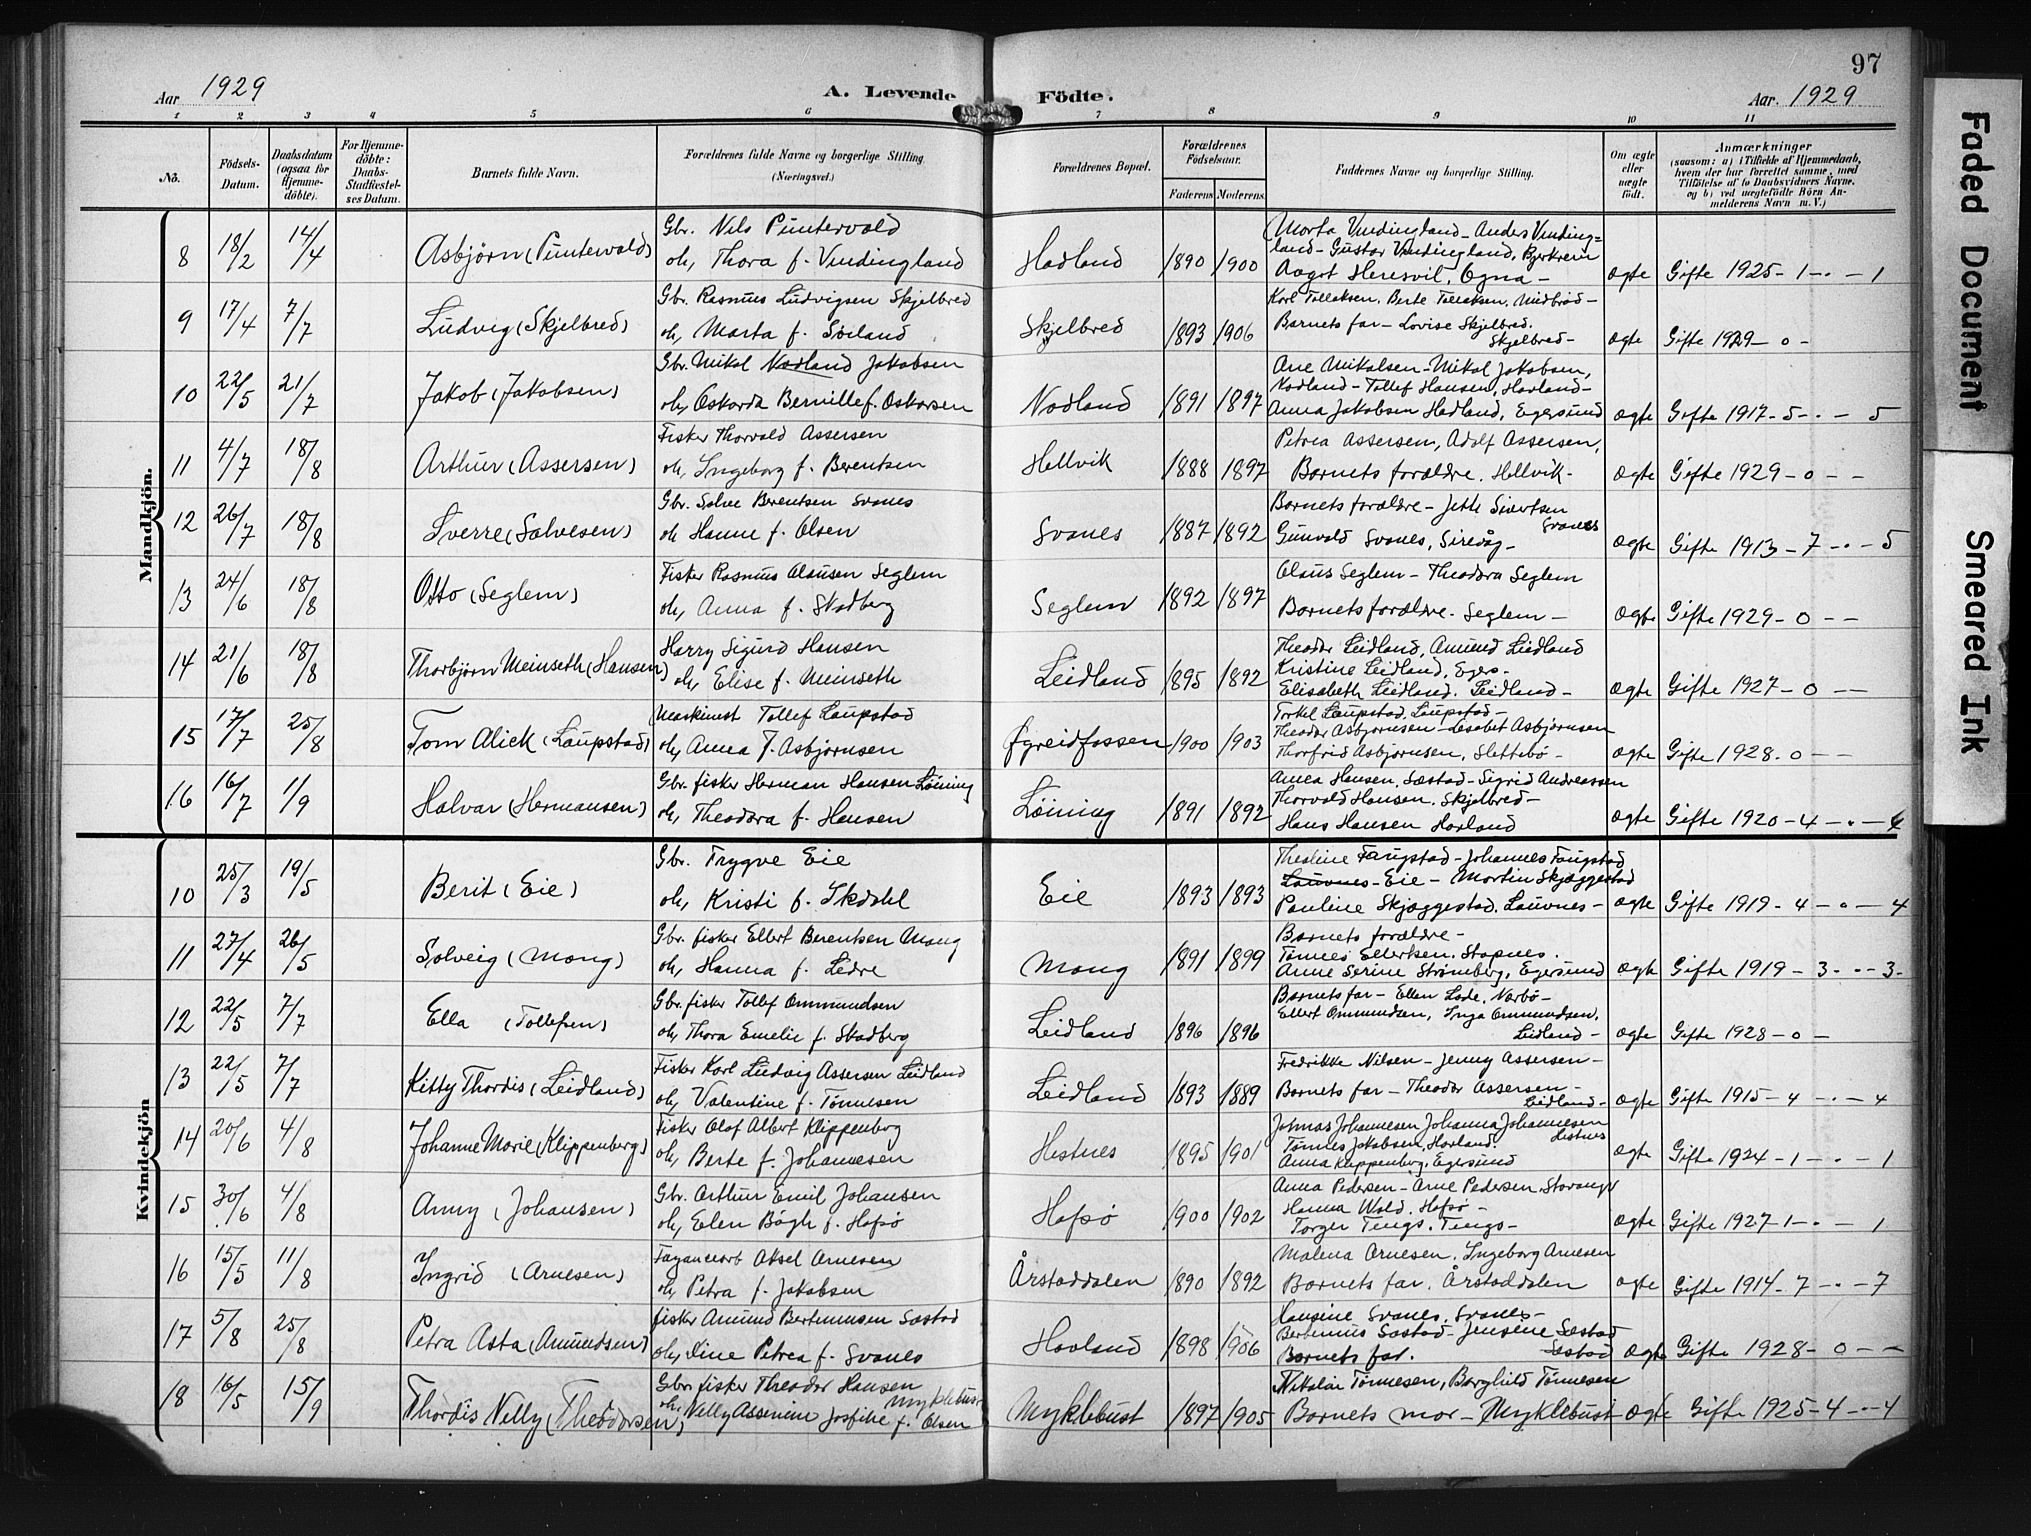 97
Aar 1929
A. Levende Födte.
Aar. 1929
1 2 3 4 5 6 7 8 9 10 11
No.
Födsels-Datum.
Daabsdatum (ogsaa for Hjemme-döbte).
For Hjemme-döbte: Daabs-Stadfæstel-ses Datum.
Barnets fulde Navn.
Forældrenes fulde Navne og borgerlige Stilling (Næringsvei.)
Forældrenes Bopæl.
Forældrenes Födselsaar.
Faderens Moderens
Faddernes Navne og borgerlige Stilling.
Om ægte eller uægte født.
Anmærkninger
(saasom: a) i Tilfælde af Hjemmedaab,
hvem der har forrettet samme, med
Tilföielse af to Daabsvidners Navne,
og b) ved uægtefödte Börn An-
melderens Navn m. V.)
Mandkjön.
8 18/2 14/4 Asbjörn (Puntervold)
Gbr. Nils Puntervold
oh, Thora f. Vindingland
Hadland 1890 1900
Marta Vindingland - Anders Vinding=
land - Gustav Vindingland, Bjerkreim
Aagot Heresvil, Ogna -
ægte Gifte 1925 - 1 - . - 1
9 17/4 7/7 Ludvig (Skjelbred)
Gbr. Rasmus Ludvigsen Skjelbred
oh, Marta f. Söiland
Skjelbred 1893 1906
Karl Tollaksen. Berte Tollaksen. Midbröd -
Barnets far - Lovise Skjelbred.
Skjelbred -
ægte Gifte 1929 - 0 -
10 22/5 21/7 Jakob (Jakobsen)
Gbr. Mikal Nodland Jakobsen
oh, Oskarda Bernille f. Oskarsen
Nodland 1891 1897
Ane Mikalsen - Mikal Jakobsen,
Nodland - Tollef Hansen, Havland -
Anna Jakobsen Hadland, Egersund
ægte Gifte 1917 - 5 - . - 5
11 4/7 18/8 Arthur (Assersen)
Fisker Thorvald Assersen
oh, Ingeborg f. Berentsen
Hellvik 1888 1897
Petrea Assersen, Adolf Assersen,
Barnets forældre. Hellvik -
ægte Gifte 1929 - 0 - -
12 26/7 18/8 Sverre (Salvesen)
Gbr. Salve Berentsen Svanes
oh Hanne f. Olsen
Svanes 1887 1892
Barnets forældre - Jette Sivertsen
Svanes
Gunvald Svanes, Sirevåg -
ægte Gifte 1913 - 7 - . - 5
13 24/6 18/8 Otto (Seglem)
Fisker Rasmus Olausen Seglem
oh, Anna f. Stadberg
Seglem 1892 1897
Olaus Seglem - Theodora Seglem
Barnets forældre. Seglem -
ægte Gifte 1929 - 0 - -
14 21/6 18/8 Thorbjørn Meinseth (Hansen)
Harry Sigurd Hansen
oh, Elise f. Meinseth
Leidland 1895 1892
Theodor Leidland, Amund Leidland
Kristine Leidland, Egers -
Elisabeth Leidland. Leidland -
ægte Gifte 1927 - 0 - -
15 17/7 25/8 Tom Alick (Laupstad)
Maskinist Tollef Laupstad
oh, Anna T. Asbjørnsen
Øgreidfossen 1900 1903
Torkel Laupstad, Laupstad -
Theodor Asbjørnsen - Lesabet Asbjørnsen
Thorfrid Asbjørnsen, Slettebö -
ægte Gifte 1928. 0 - -
16 16/7 1/9 Halvar (Hermansen)
Gbr. fisker Herman Hansen Løining
oh, Theodora f. Hansen
Løining 1891 1892
Anea Hansen, Sæstad - Sigrid Andreassen
Thorvald Hansen. Skjelbred -
Hans Hansen Havland
ægte Gifte 1920 - 4 - . - 4
Kvindekjön
10 25/3 19/5 Berit (Eie)
Gbr. Trygve Eie
oh, Kristi f. Skdahl
Eie 1893 1893
Thealine Faugstad - Johannes Faugstad
Lauvnes - Eie - Martin Skjæggestad
Pauline Skjæggestad. Lauvnes -
ægte Gifte 1919 - 4 - . - 4
11 27/4 26/5 Solveig (Mong)
Gbr. fisker Ellert Berentsen Mong
oh, Hanna f. Ledre
Mong 1891 1899
Barnets forældre -
Tønnes Ellertsen. Stapnes.
Anne Serine Strömberg, Egersund
ægte Gifte 1919 - 3 - . - 3 -
12 22/5 7/7 Ella (Tollefsen)
Gbr. fisker Tollef Ommundsen
oh, Thora Emelie f. Stadberg
Leidland 1896 1896
Barnets far - Ellen Lode. Varbö -
Ellert Ommundsen, Inga Ommundsen,
Leidland -
ægte Gifte 1928 - 0 -
13 22/5 7/7 Kitty Thordis (Leidland)
Fisker Karl Ludvig Assersen Leidland
oh, Valentine f. Tönnesen
Leidland 1893 1889
Fredrikke Nilsen - Jenny Assersen -
Barnets far - Theodor Assersen -
Leidland -
ægte Gifte 1915 - 4 - . - 4
14 20/6 4/8 Johanne Marie (Klippenberg)
Fisker Olaf Albert Klippenberg
oh, Berte f. Johannesen
Hestnes 1895 1901
Johnas Johannesen Johanna Johannesen
Hestnes
Tønnes Jakobsen, Havland.
Anna Klippenberg, Egersund
ægte Gifte 1924 - 1 - . - 1
15 30/6 4/8 Anny (Johansen)
Gbr. Arthur Emil Johansen
oh, Elen Bögh f. Hafsö
Hafsö 1900 1902
Anna Pedersen - Arne Pedersen, Stavanger
Hanna Wold. Hafsö -
Torger Tengs. Tengs -
ægte Gifte 1927 - 1 - . - 1
16 15/5 11/8 Ingrid (Arnesen)
Fayancearb Aksel Arnesen
oh, Petra f. Jakobsen
Årstaddalen 1890 1892
Malena Arnesen, Ingeborg Arnesen
Barnets far. Årstaddalen
ægte Gifte 1914 - 7 - . - 7
17 5/8 25/8 Petra Asta (Amundsen)
fisker Amund Bertinussen Sæstad
oh, Line Petrea f. Svanes
Havland 1898 1906
Hansine Svanes, Svanes -
Bertinius Sæstad - Jensine Sæstad
Barnets far. Sæstad
ægte Gifte 1928 - 0 - -
18 16/5 15/9 Thordis Nelly (Theodorsen)
Gbr. fisker Theodor Hansen
Myklebust
oh, Nelly Assenine Josfine f. Olsen
Myklebust 1897 1905
Nikolai Tönnesen, Borghild Tönnesen
Barnets mor - Myklebust
ægte Gifte 1925 - 4 - . - 4
Faded Document
Smeared Ink